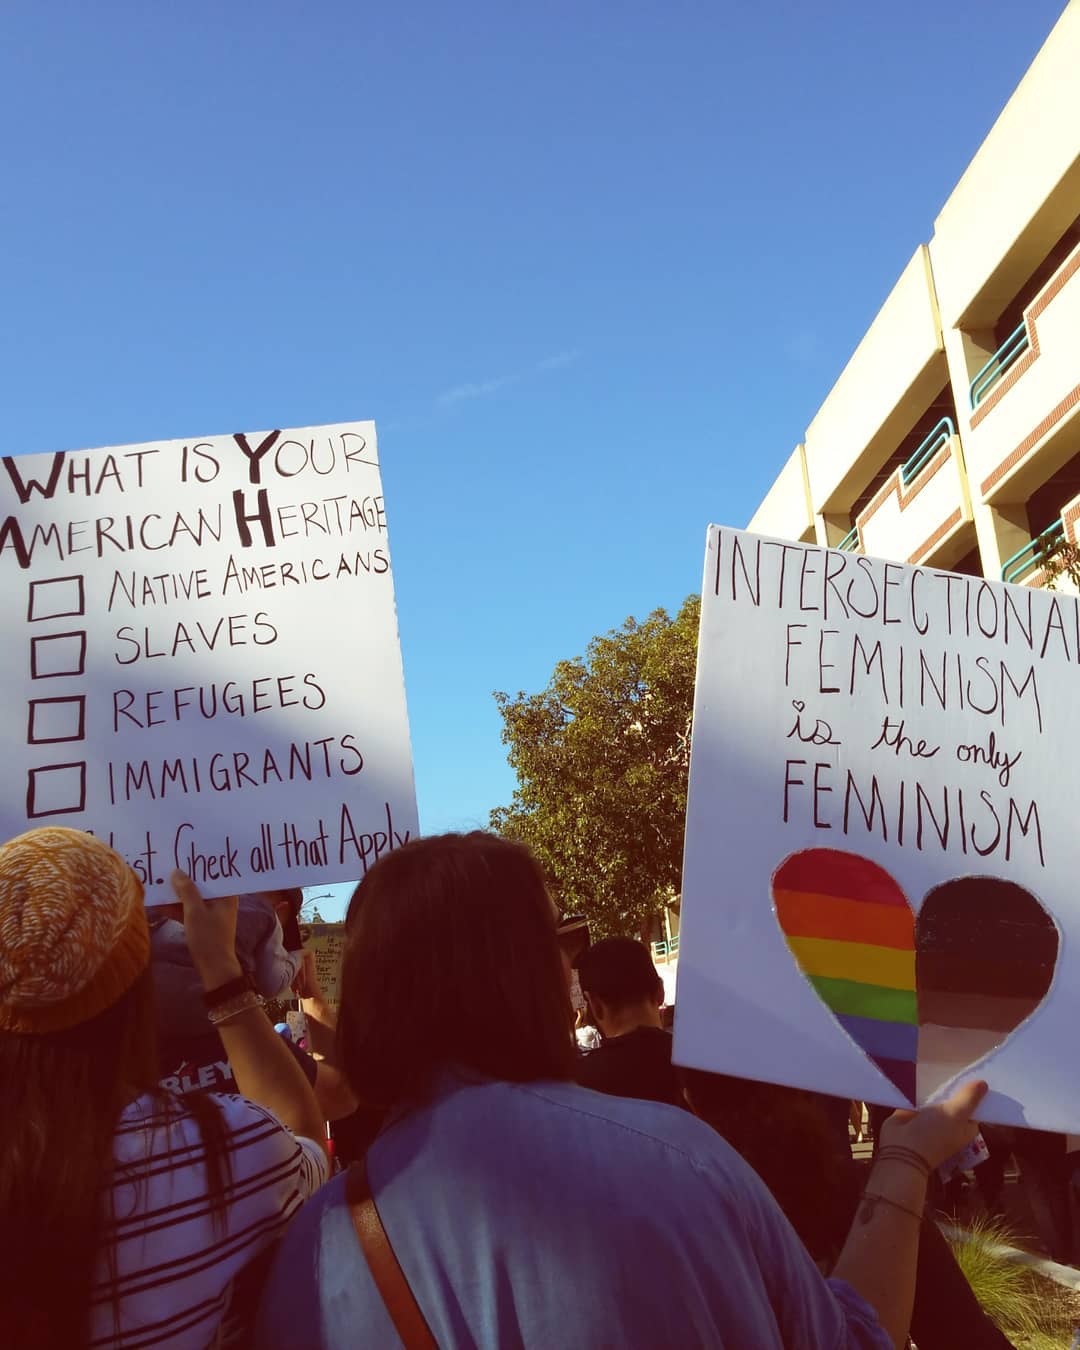 WHAT IS YOUR
AMERICAN HERITAGE
NATIVE AMERICANS
SLAVES
REFUGEES
IMMIGRANTS
Check all that Apply
INTERSECTIONAL
FEMINISM
is the only
FEMINISM
RLEY